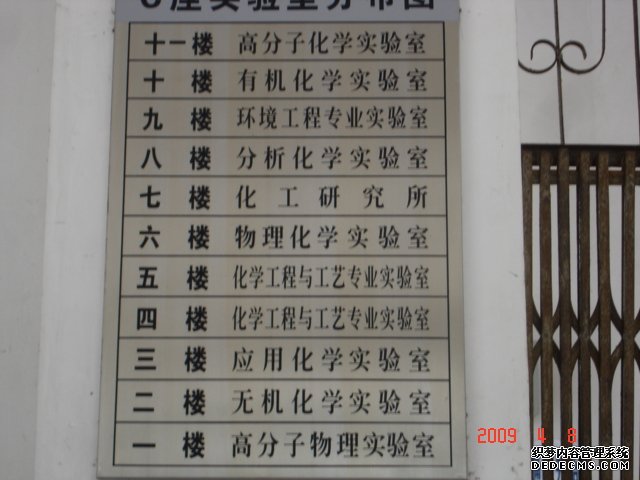 座实验室分布图
十一楼 高分子化学实验室
十楼 有机化学实验室
九楼 环境工程专业实验室
八楼 分析化学实验室
七楼 化工研究所
六楼 物理化学实验室
五楼 化学工程与工艺专业实验室
四楼 化学工程与工艺专业实验室
三楼 应用化学实验室
二楼 无机化学实验室
一楼 高分子物理实验室
2009 4 8
织梦内容管理系统
DEDECMS.COM